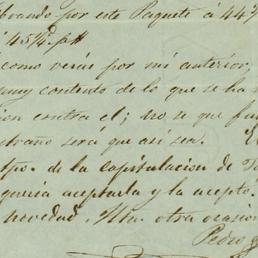 brando por este Paquete á 44
á 45¼ p#
como verás por mi anterior,
muy contento de lo que se ha
ion contra el; no se que fu
traño será que así sea. E
tpo. de la capitulacion de
queria aceptarla y la acepto.
novedad. Un otra ocasion
Pedro